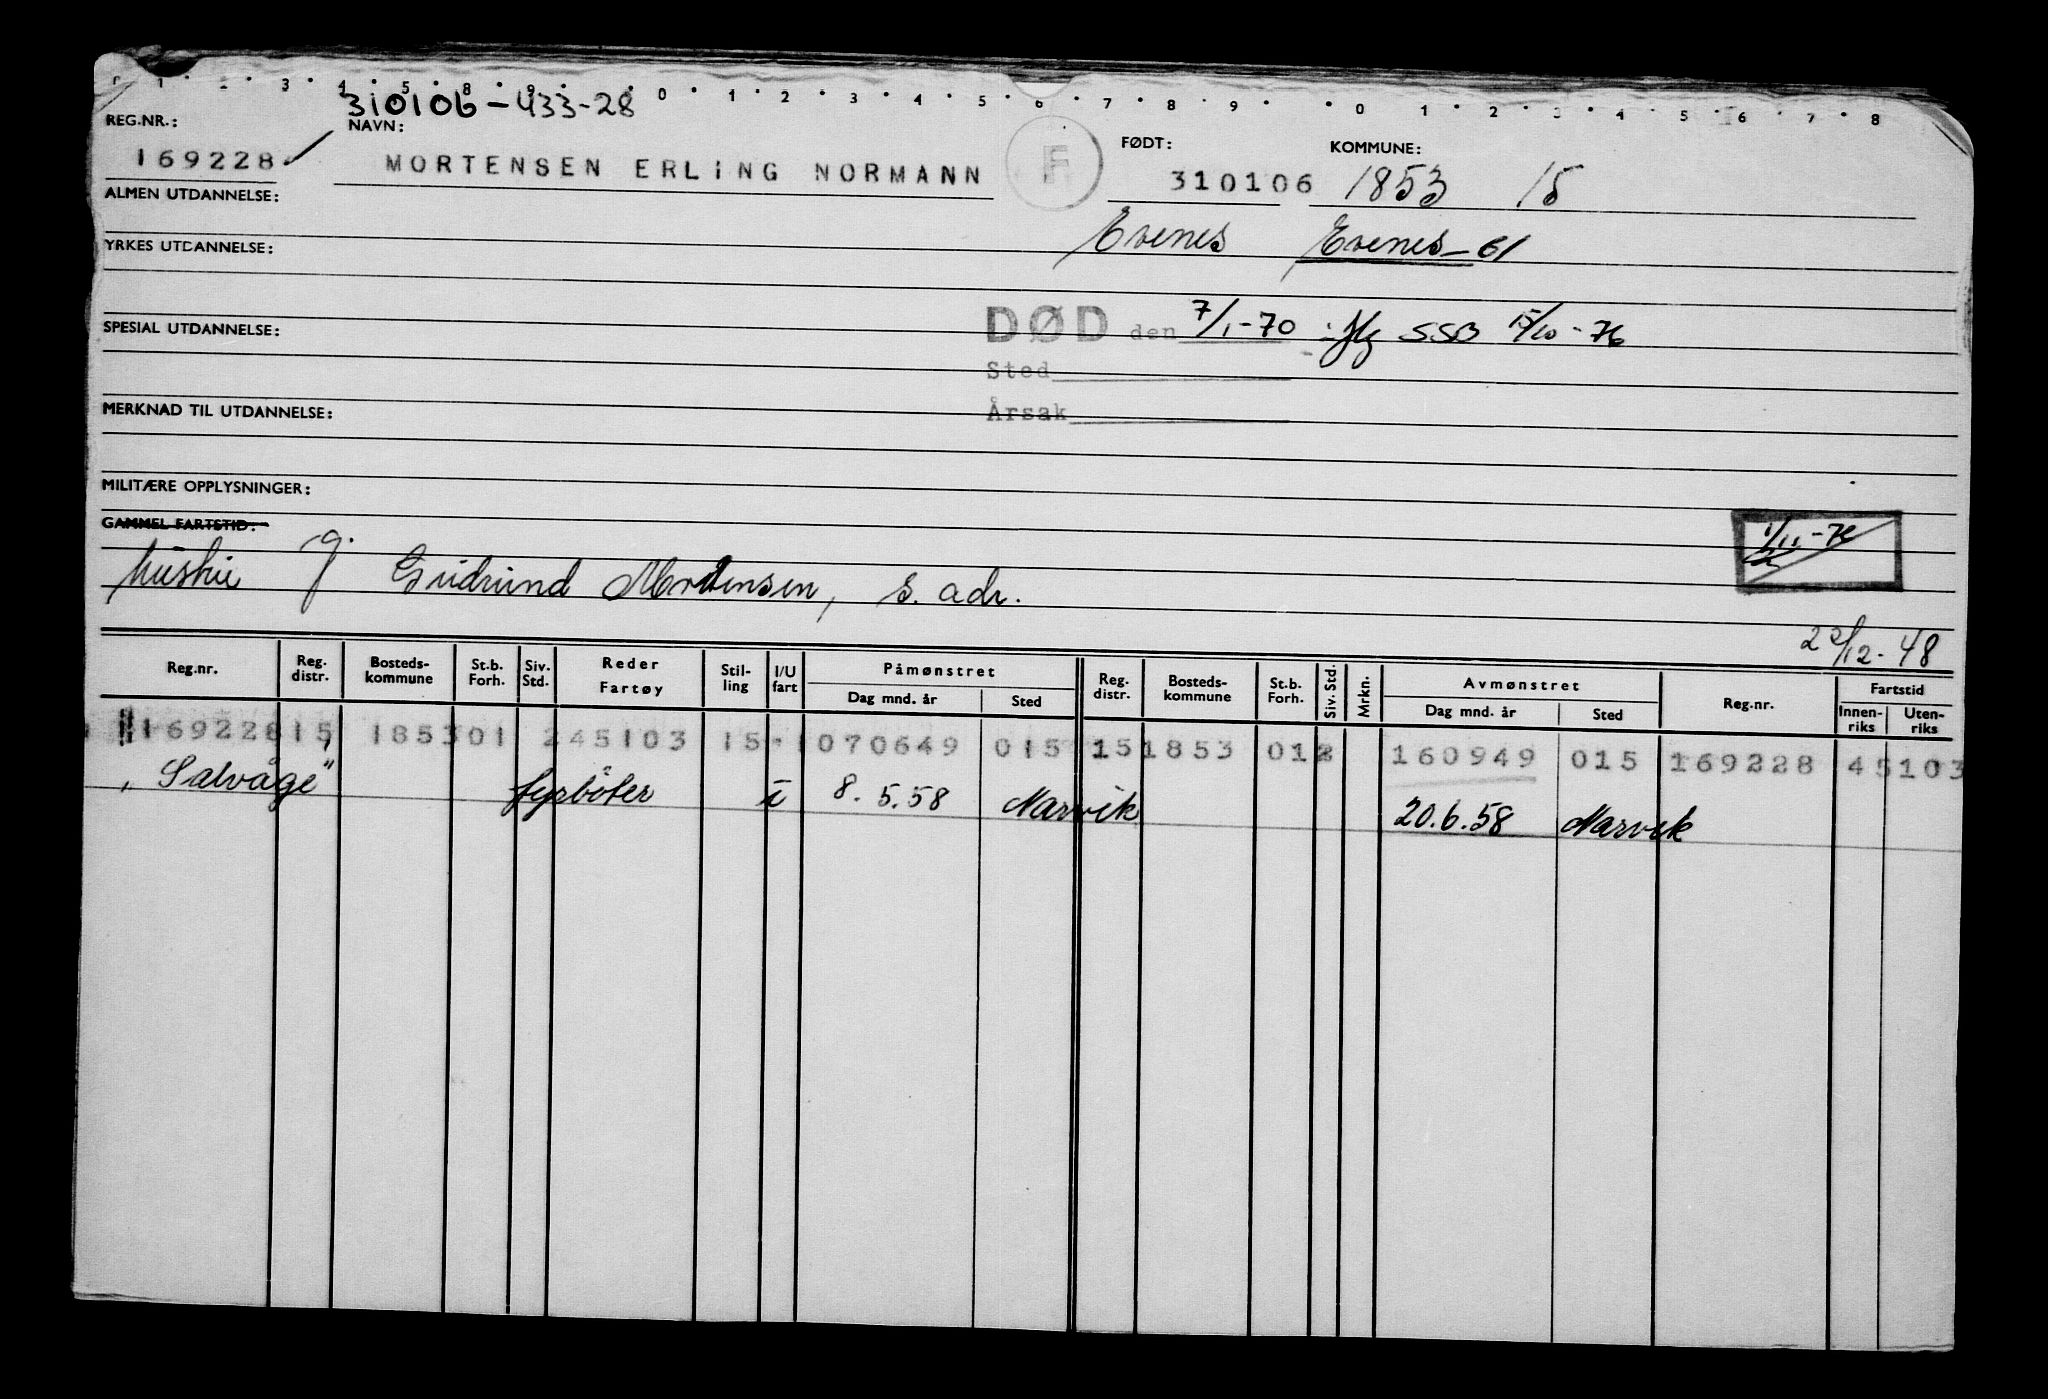 1 2 3 4 5 8 9 0 1 2 3 4 5 6 7 8 9 0 1 2 3 4 5 6 7 8
310106-433-28
REG.NR.: NAVN: FØDT: KOMMUNE:
169228 MORTENSEN ERLING NORMANN F 310106 1853 15
ALMEN UTDANNELSE:
Evenes Evenes-61
YRKES UTDANNELSE:
DØD den 7/1-70 SSB 15/10-76
SPESIAL UTDANNELSE:
Sted
MERKNAD TIL UTDANNELSE: Årsak
MILITÆRE OPPLYSNINGER:
GAMMEL FARTSTID:
1/11-76
hustru g. Gudrund Mortensen, s. adr.
22/12-48
Reg.nr. Reg. distr. Bosteds-kommune St.b. Forh. Siv. Std. Reder Fartøy Stil-ling I/U fart Påmønstret Dag mnd. år Sted Reg. distr. Bosteds-kommune St.b. Forh. Siv. Std. Mrkn. Avmønstret Dag mnd. år Sted Reg.nr. Fartstid Innen-riks Uten-riks
169228 15 1853 01 245103 15-1 070649 015 15 1853 012 160949 015 169228 45103
"Salvåge" fyrbøter i 8.5.58 Narvik 20.6.58 Narvik